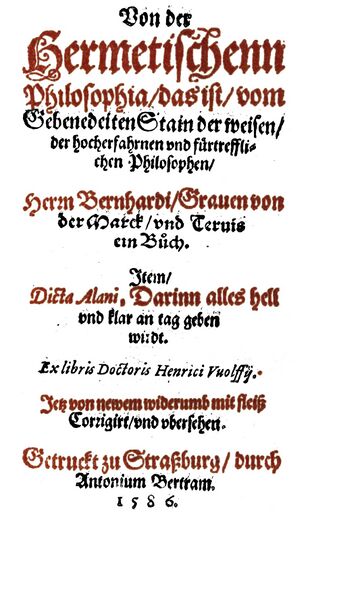 Von der
Hermetischenn
Philosophia/das ist/vom
Gebenedeiten Stain der weisen/
der hocherfahrnen vnd fürtreffli-
chen Philosophen/
Herm Bernhardi/Grauen von
der Marck/vnd Teruis
ein Bůch.
Item/
Dicta Alani. Darinn alles hell
vnd klar an tag geben
wirdt.
Ex libris Doctoris Henrici Vuolffÿ.
Jetz von newem widerumb mit fleiß
Corrigirt/vnd vbersehen.
Getruckt zu Straßburg/durch
Antonium Bertram.
1586.